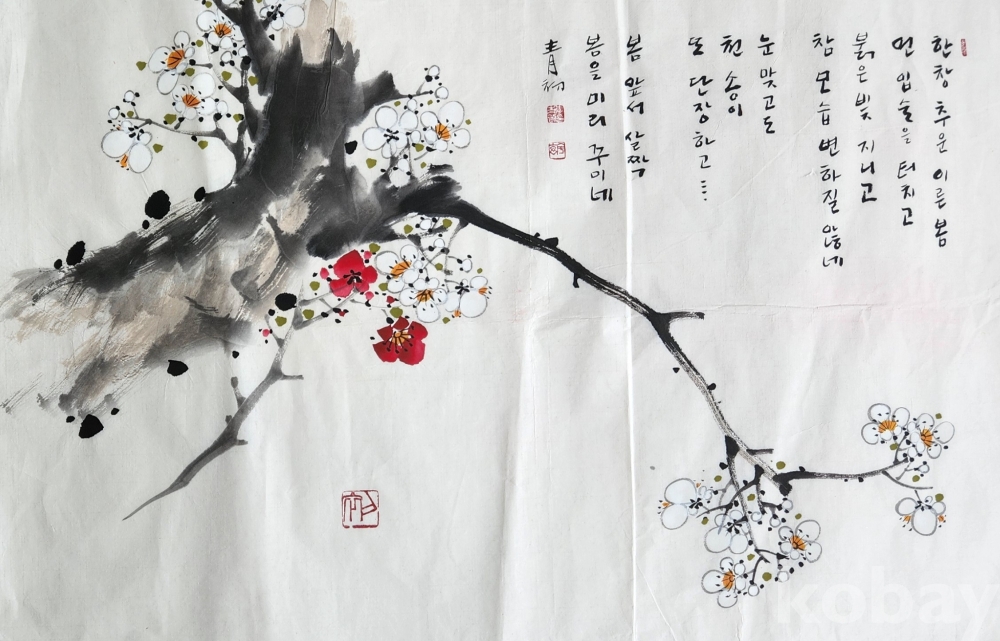 한창 추운 이른 봄
먼 입술을 터치고
붉은 빛 지니고
참 모습 변하질 않네
눈 맞고도
천 송이
또 단장하고…
봄 앞서 살짝
봄을 미리 꾸미네
kobay